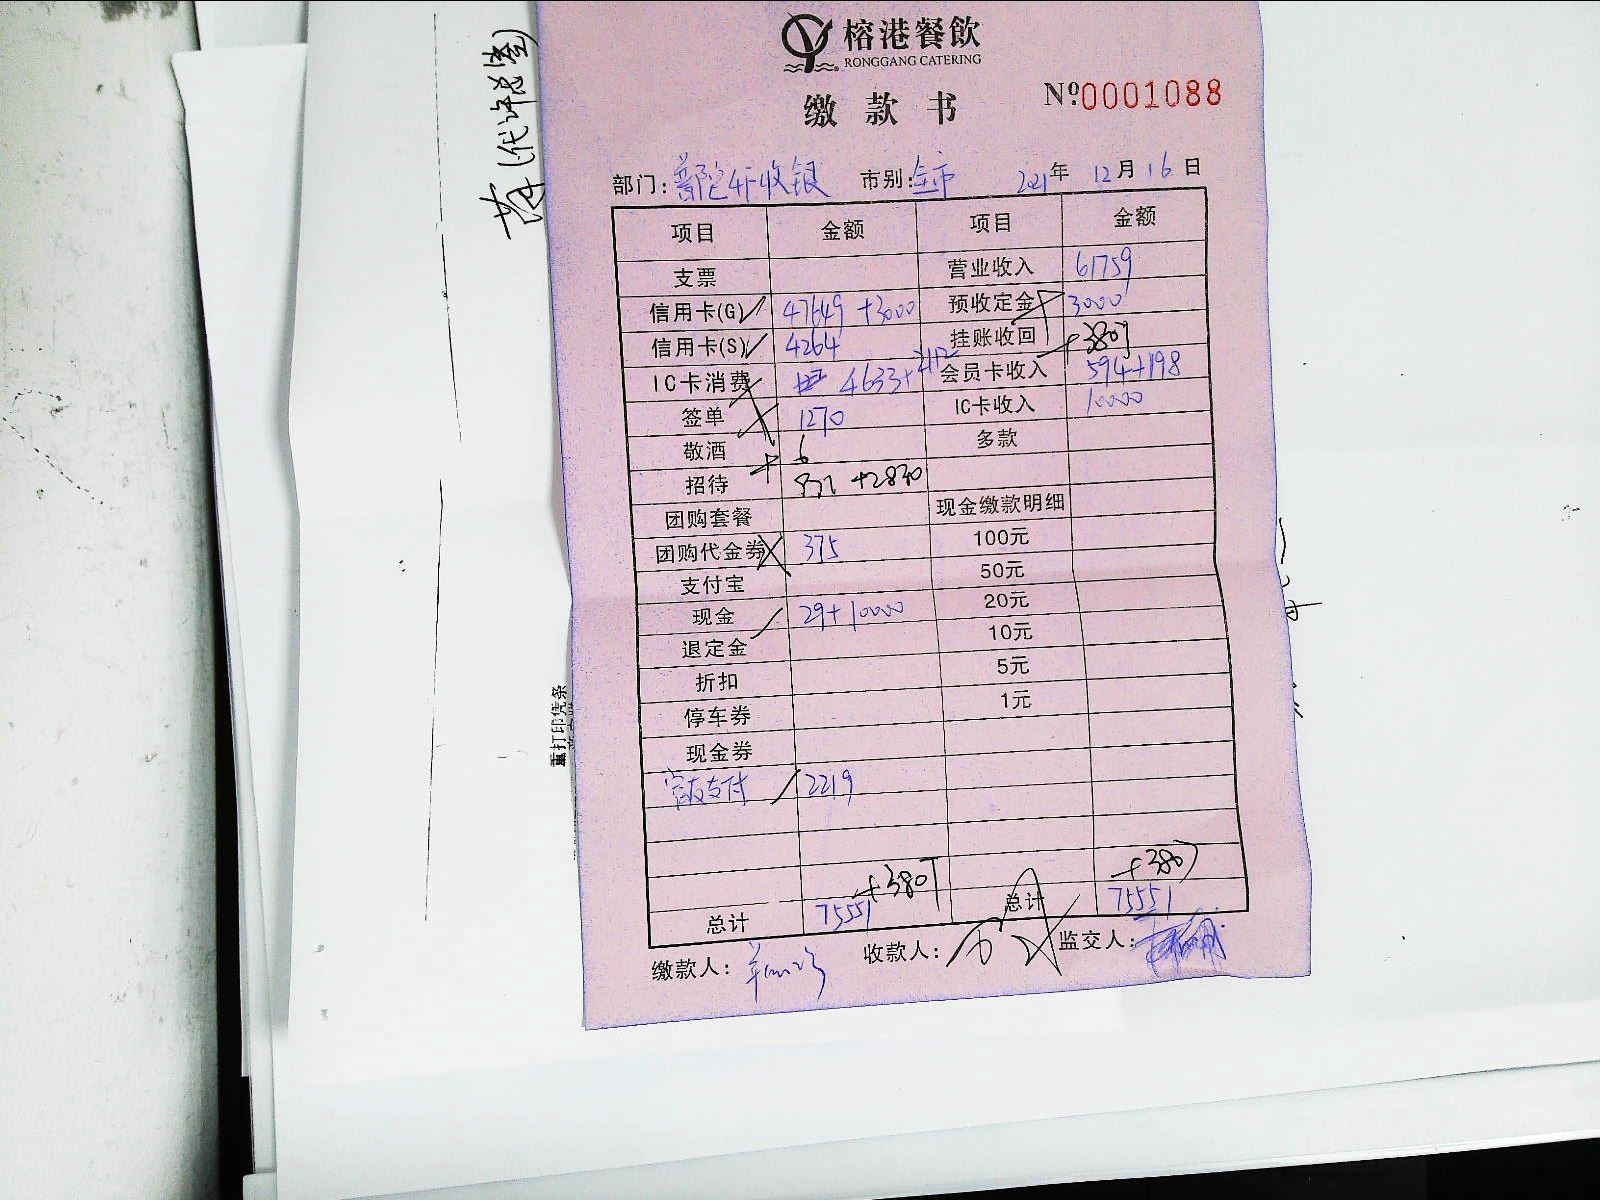 榕港餐飲
RONGGANG CATERING
缴款书
Nº0001088
部门: 收银 市别: 全市 2021年12月16日
项目 金额 项目 金额
支票 营业收入 61759
信用卡(G) 47649+3000 预收定金 3000
信用卡(S) 4264 挂账收回 +3807
IC卡消费 4633+2112 会员卡收入 594+198
签单 1270 IC卡收入 10000
敬酒 多款
招待 +2830
团购套餐 现金缴款明细
团购代金券 375 100元
支付宝 50元
现金 29+10000 20元
退定金 10元
折扣 5元
停车券 1元
现金券
支付 2219
+3807 +3807
总计 75551 总计 75551
缴款人: 收款人: 监交人:
重打印凭条